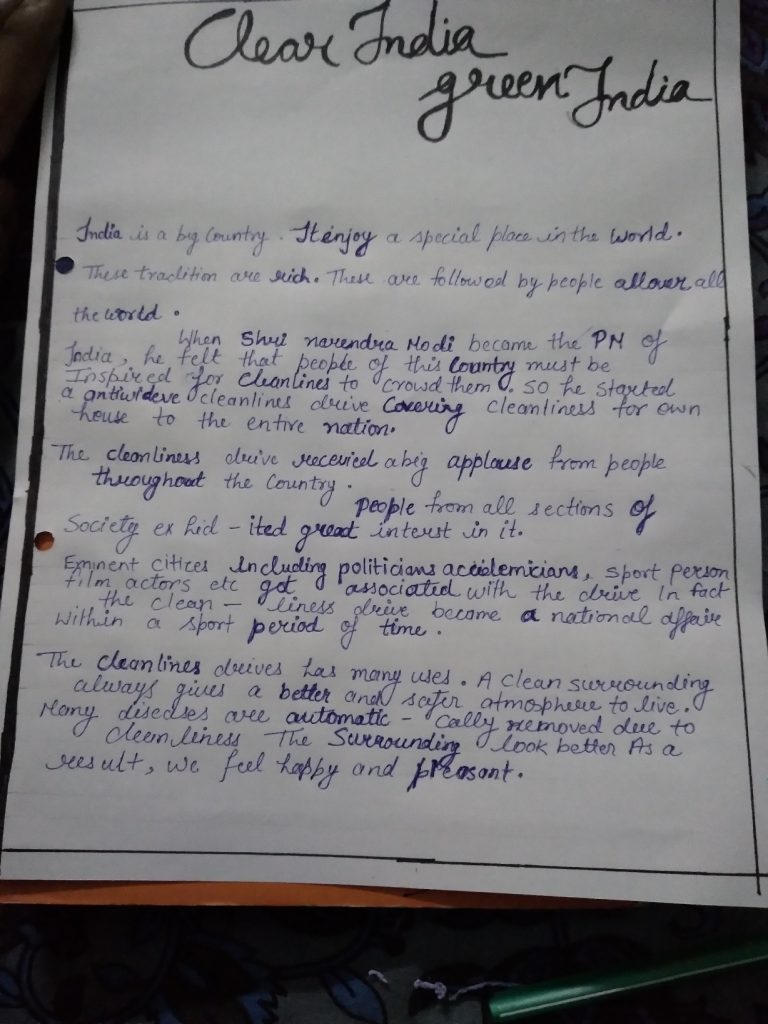 Clear India
green India
India is a big Country. It enjoy a special place in the world.
These tradition are rich. These are followed by people allover all
the world.
When Shri narendra Modi became the PM of
India, he felt that people of this Country must be
Inspired for Cleanlines to crowd them. so he started
a antiwideve cleanlines drive Covering cleanliness for own
house to the entire nation.
The cleanliness drive received a big applause from people
throughout the Country.
people from all sections of
Society ex hid - ited great interest in it.
Eminent citices Including politicians accidemicians, sport person
film actors etc got associated with the drive In fact
the clean - liness drive become a national affair
within a sport period of time.
The cleanlines drives has many uses. A clean surrounding
always gives a better and safer atmosphere to live.
Many diseases are automatic - cally removed due to
cleenliness The Surrounding look better As a
result, we feel happy and pleasant.